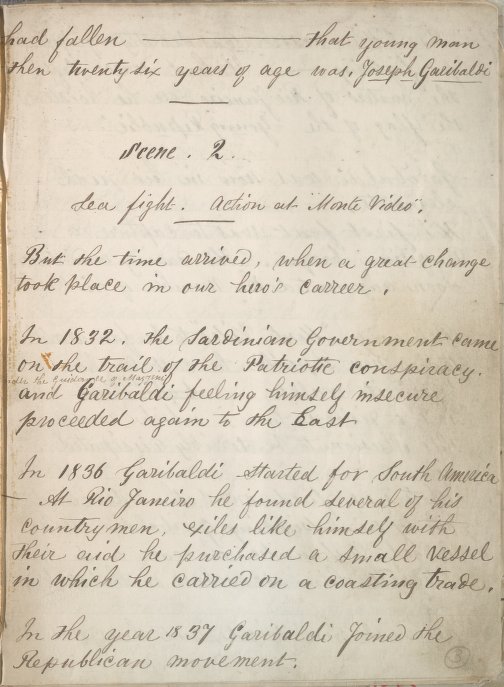 had fallen ——— that young man
then twenty six years of age was. Joseph Garibaldi
Scene. 2.
Sea fight. Action at Monte Video.
But the time arrived, when a great change
took place in our hero's carreer.
In 1832. the Sardinian Government came
on the trail of the Patriotic conspiracy.
under the guidance of Mazzini
and Garibaldi feeling himself insecure
proceeded again to the East
In 1836 Garibaldi started for South America
— At Rio Janeiro he found several of his
countrymen, exiles like himself with
their aid he purchased a small vessel
in which he carried on a coasting trade.
In the year 1837 Garibaldi Joined the
Republican movement.
3